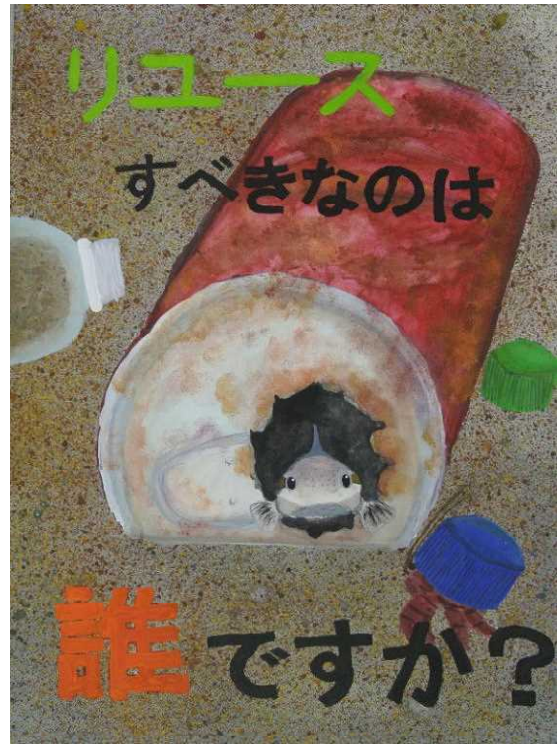 リユース
すべきなのは
誰ですか?